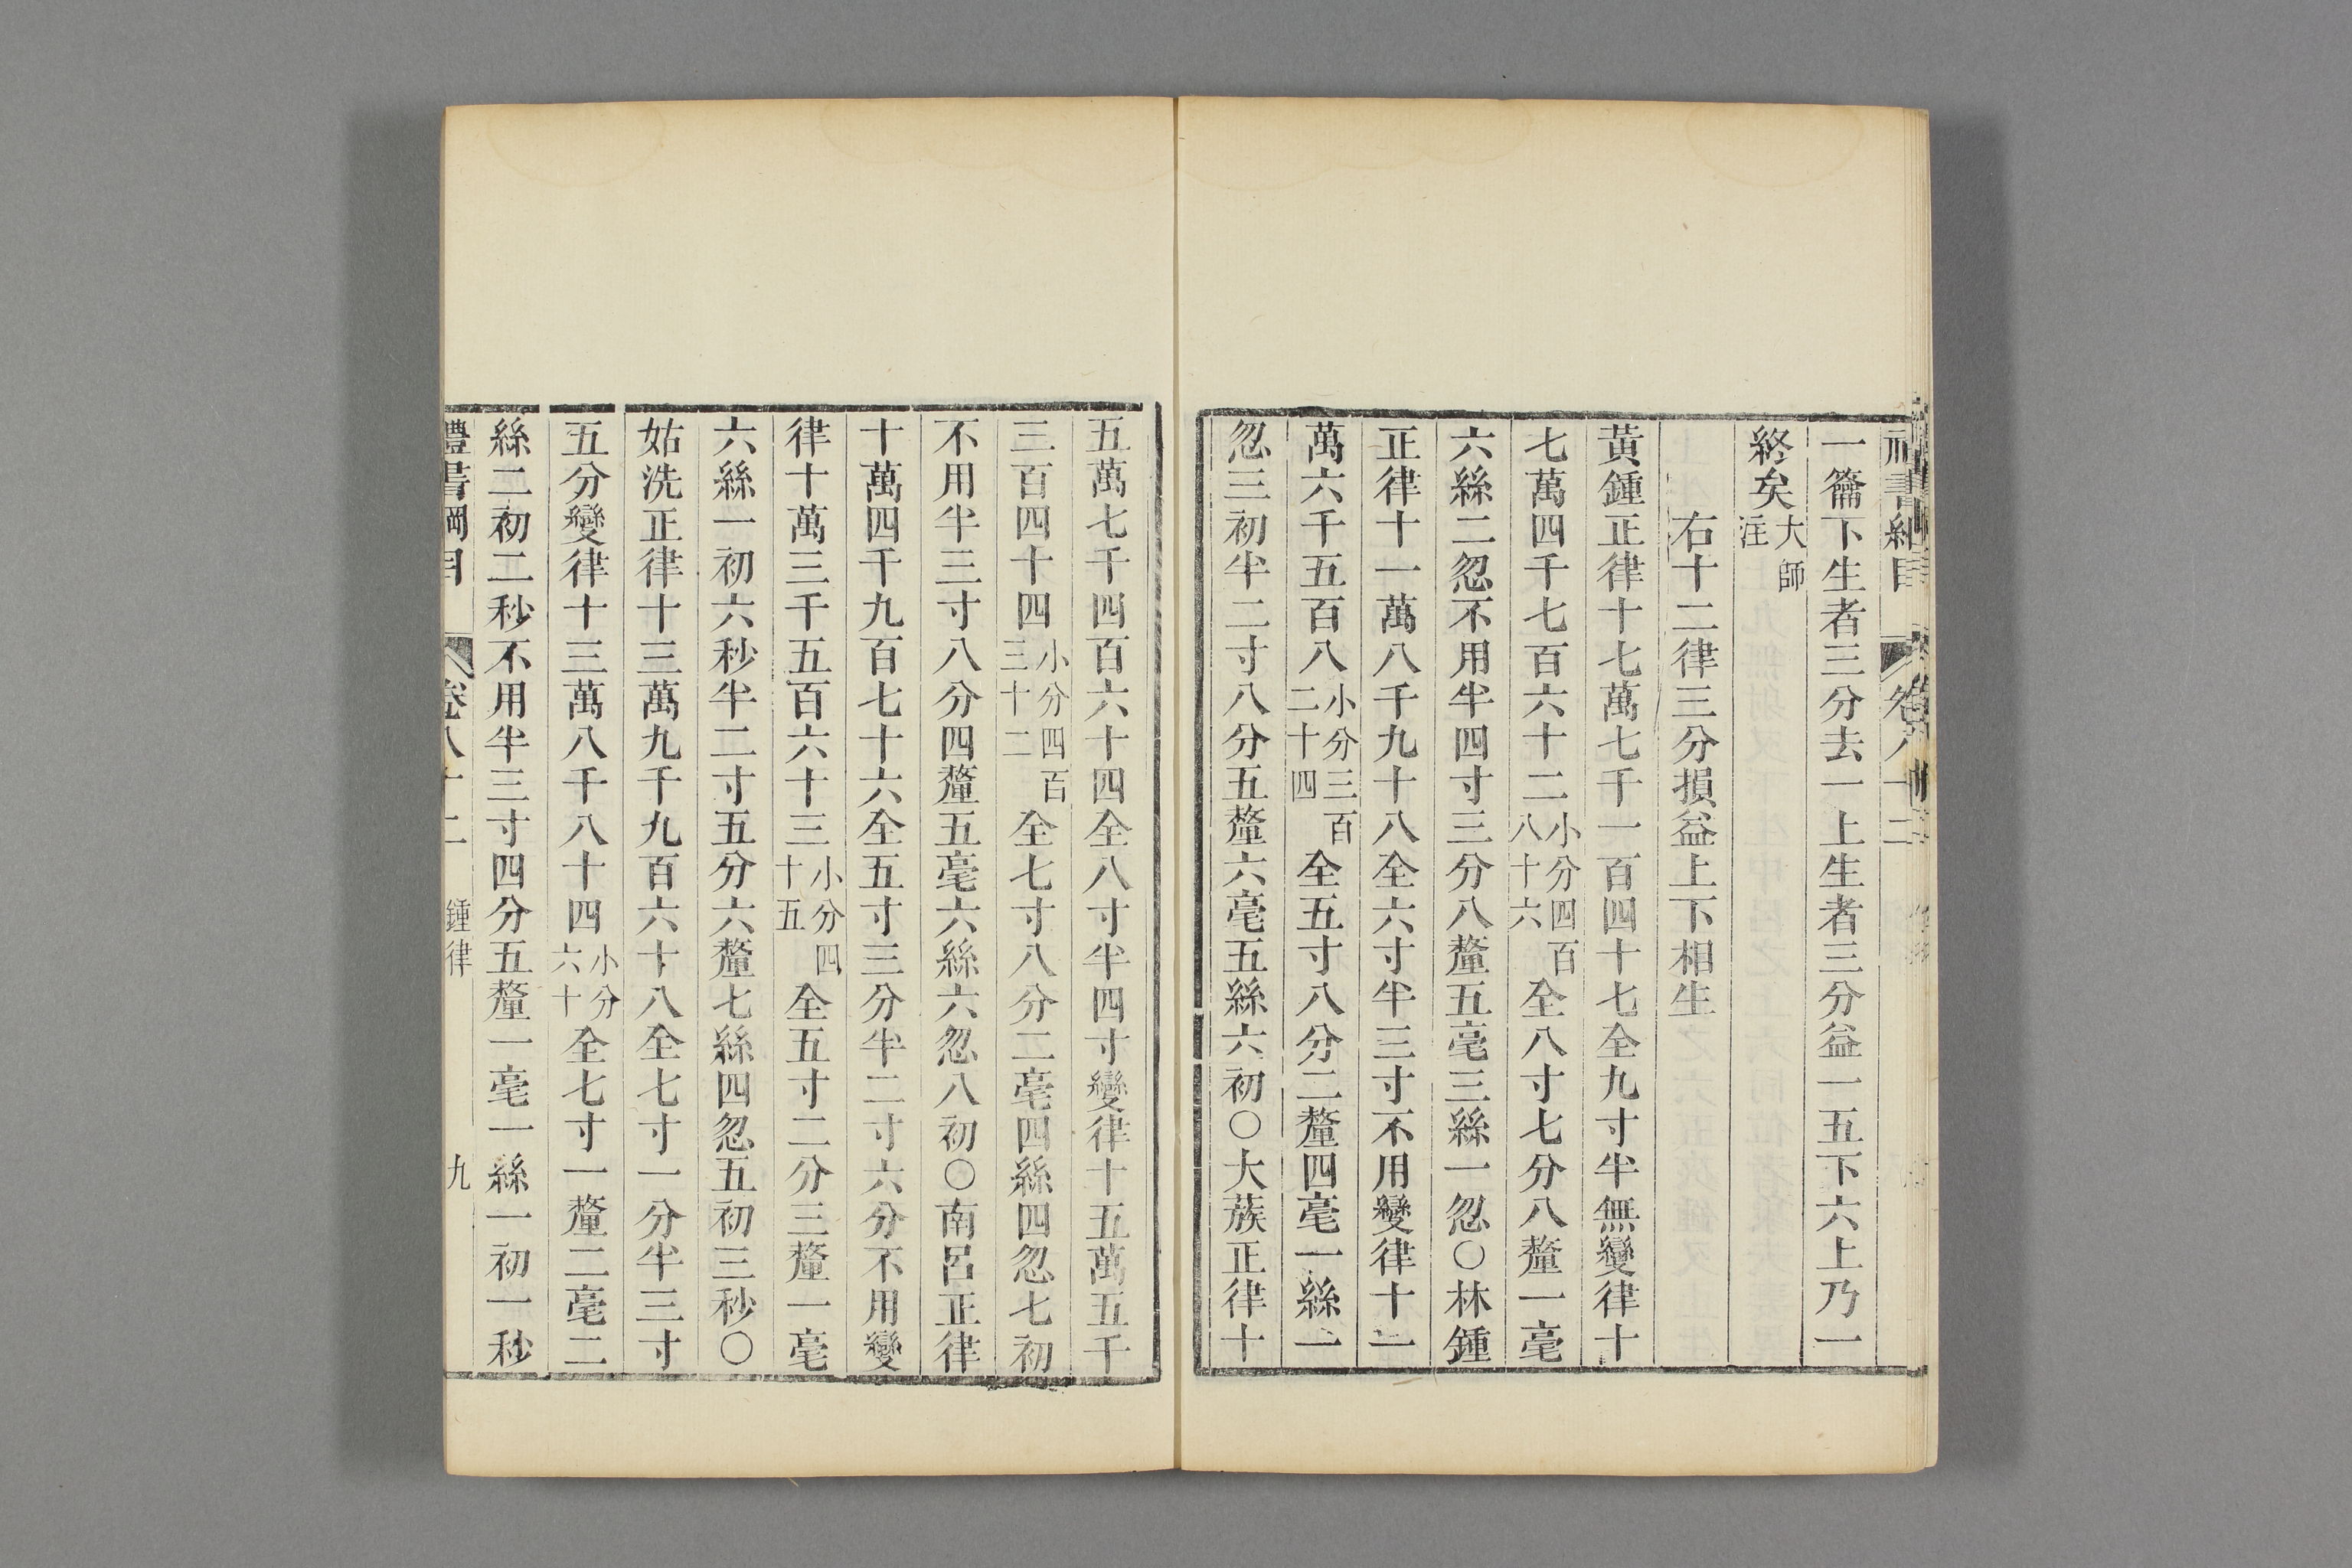 一籥下生者三分去一上生者三分益一五下六上乃一
終矣大師注
右十二律三分損益上下相生
黃鍾正律十七萬七千一百四十七全九寸半無變律十
七萬四千七百六十二小分四百八十六全八寸七分八釐一毫
六絲二忽不用半四寸三分八釐五毫三絲一忽○林鍾
正律十一萬八千九十八全六寸半三寸不用變律十一
萬六千五百八小分三百二十四全五寸八分二釐四毫一絲一
忽三初半二寸八分五釐六毫五絲六初○大蔟正律十
五萬七千四百六十四全八寸半四寸變律十五萬五千
三百四十四小分四百三十二全七寸八分二毫四絲四忽七初
不用半三寸八分四釐五毫六絲六忽八初○南呂正律
十萬四千九百七十六全五寸三分半二寸六分不用變
律十萬三千五百六十三小分四十五全五寸二分三釐一毫
六絲一初六秒半二寸五分六釐七絲四忽五初三秒○
姑洗正律十三萬九千九百六十八全七寸一分半三寸
五分變律十三萬八千八十四小分六十全七寸一釐二毫二
絲二初二秒不用半三寸四分五釐一毫一絲一初一秒
禮書綱目 卷八十二 鍾律 九